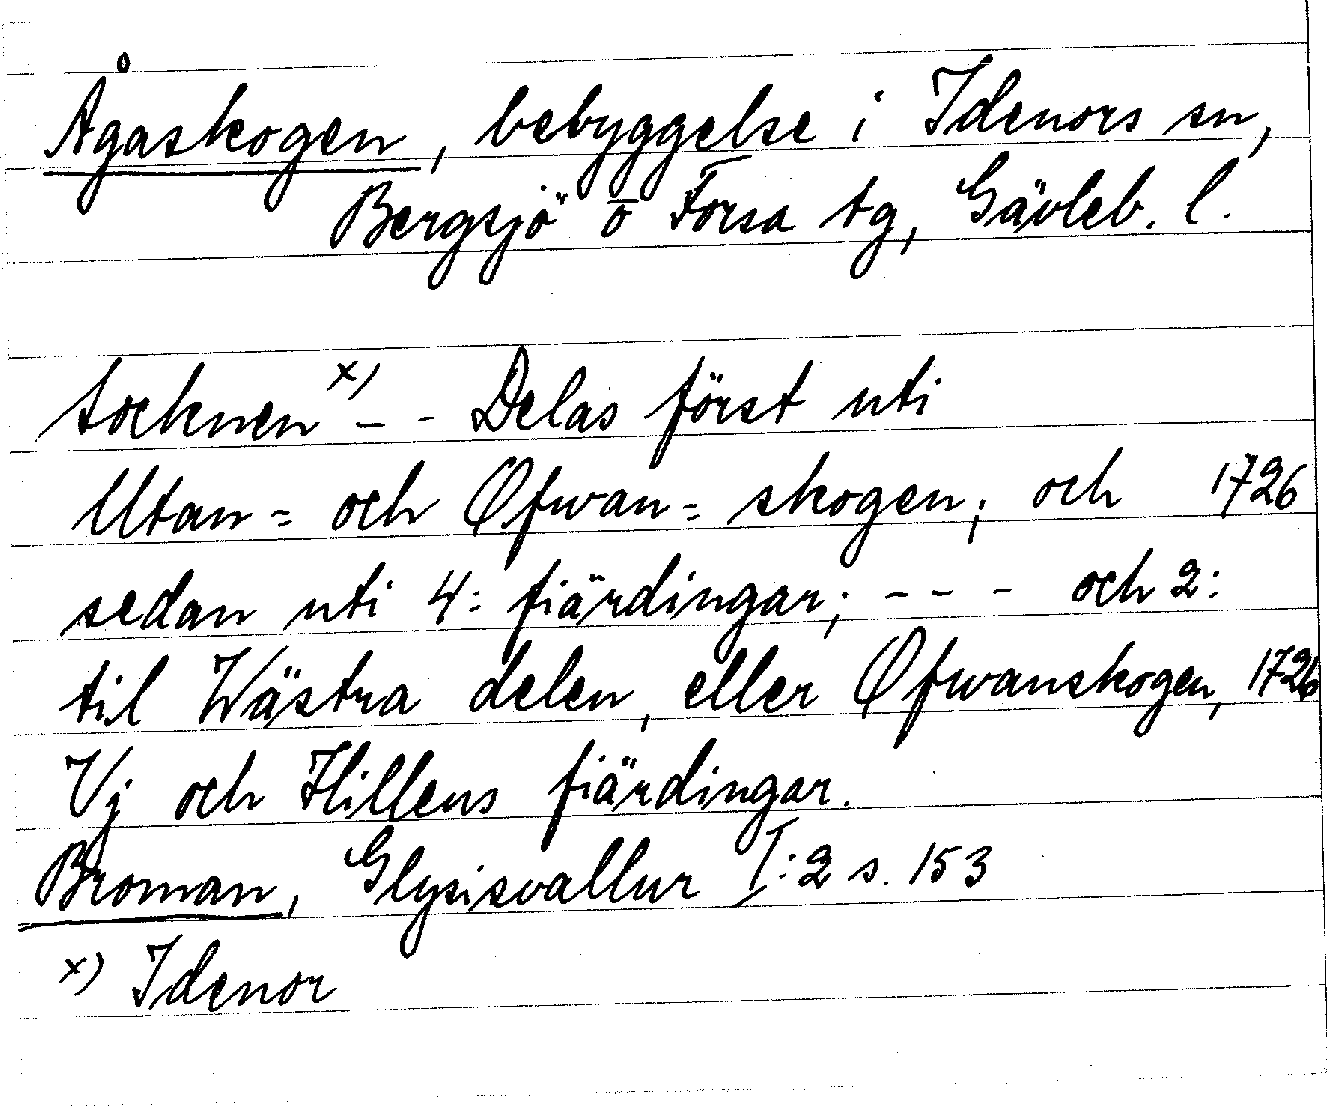 Ågaskogen, bebyggelse i Idenors sn,
Bergsjö o Forsa tg, Gävleb. l.
Socknen x) - - Delas först uti
Utan= och Øfwan= skogen; och 1726
sedan uti 4: fiärdingar; - - - och 2:
til Wästra delen, eller Øfwanskogen, 1726
Vj och Hillens fiärdingar.
Broman, Glysisvallur I:2 s. 153
x) Idenor